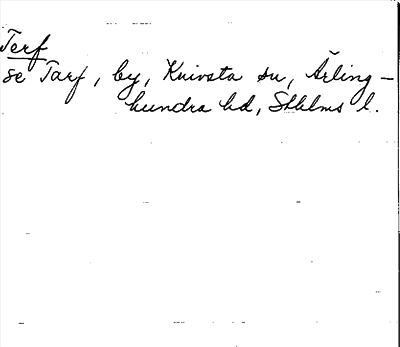 Terf
se Tarf, by, Knivsta sn, Ärling-
hundra hd, Sthlms l.